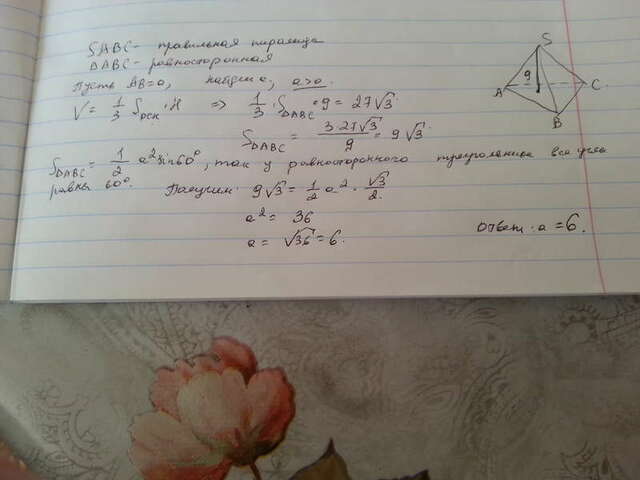 SABC - правильная пирамида
ΔABC - равносторонняя
Пусть AB=a, найдём a, a>0.
V = 1/3 Sосн · H => 1/3 · SΔABC · 9 = 27√3
SΔABC = 3·27√3/9 = 9√3
SΔABC = 1/2 a² sin60°, так у равностороннего треугольника все углы
равны 60°. Получим: 9√3 = 1/2 a² · √3/2.
a² = 36
a = √36 = 6.
Ответ: a = 6.
S
9
A
C
B